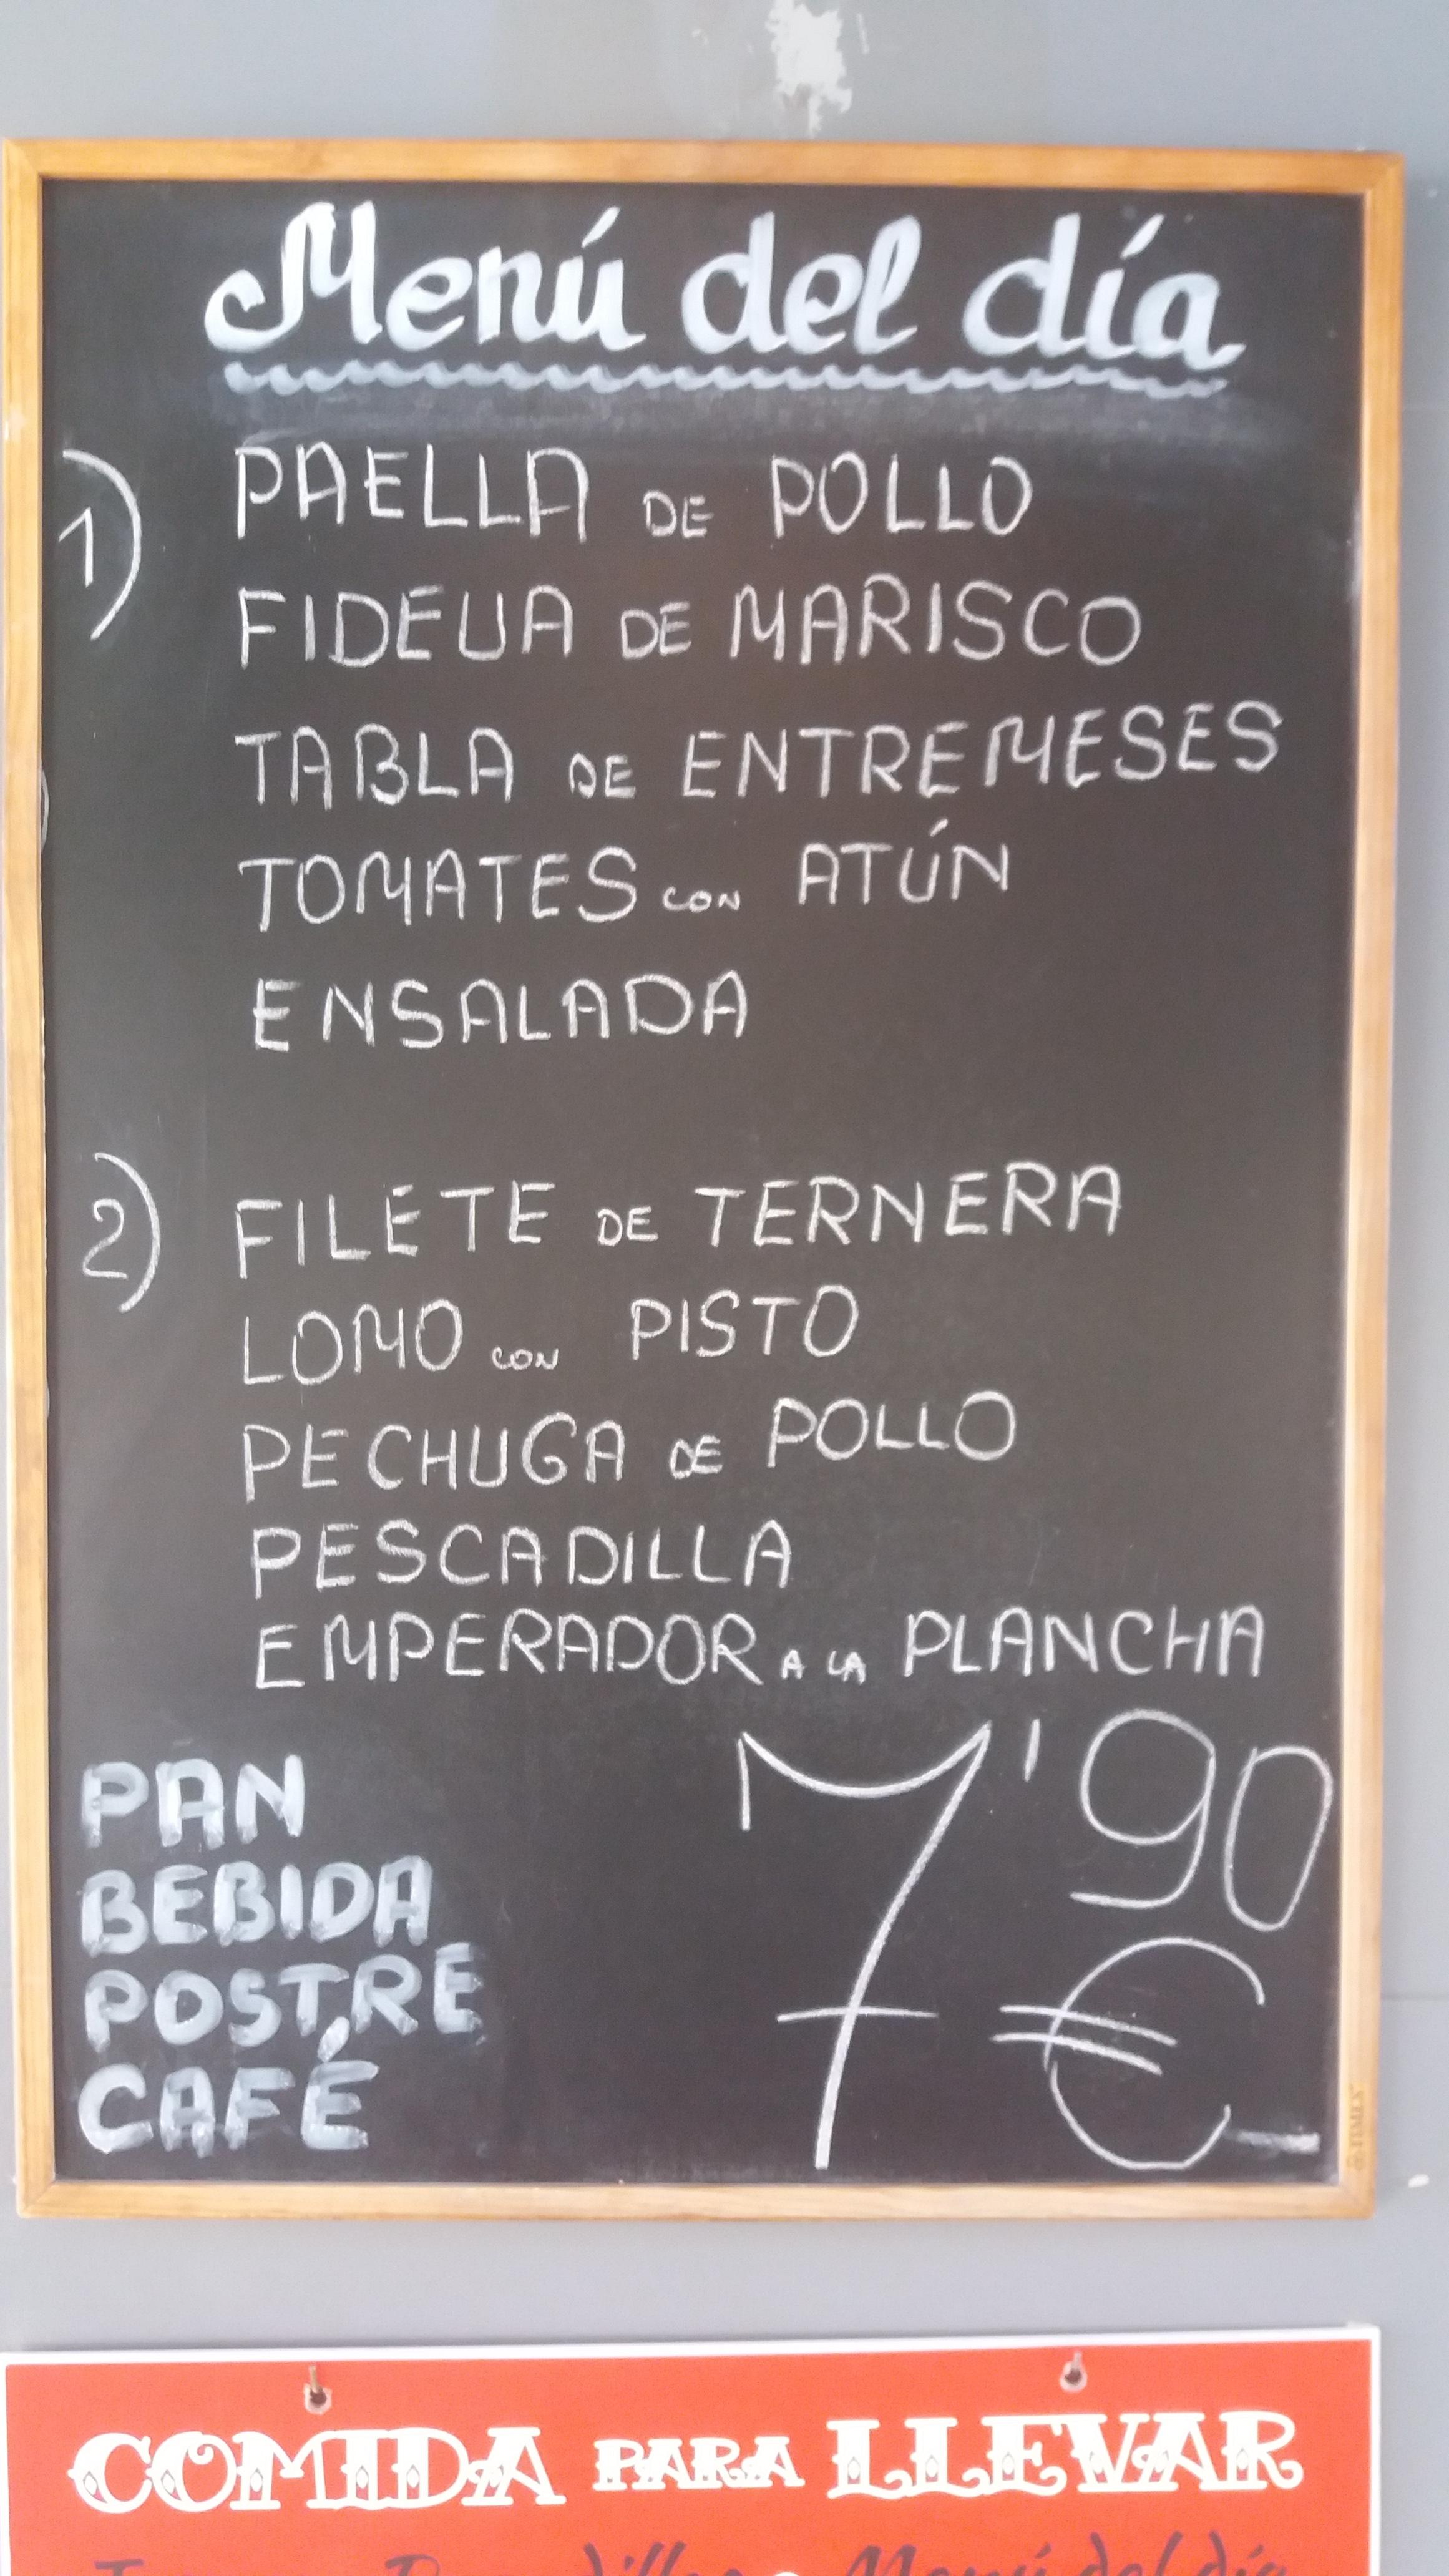 Menú del día
1) PAELLA DE POLLO
FIDEUA DE MARISCO
TABLA DE ENTREMESES
TOMATES CON ATÚN
ENSALADA
2) FILETE DE TERNERA
LOMO CON PISTO
PECHUGA DE POLLO
PESCADILLA
EMPERADOR A LA PLANCHA
7'90 €
PAN
BEBIDA
POSTRE
CAFÉ
COMIDA PARA LLEVAR
Menú del día